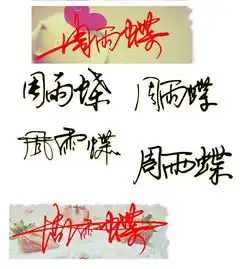 周雨蝶
周雨蝶 周雨蝶
周雨蝶 周雨蝶
周雨蝶